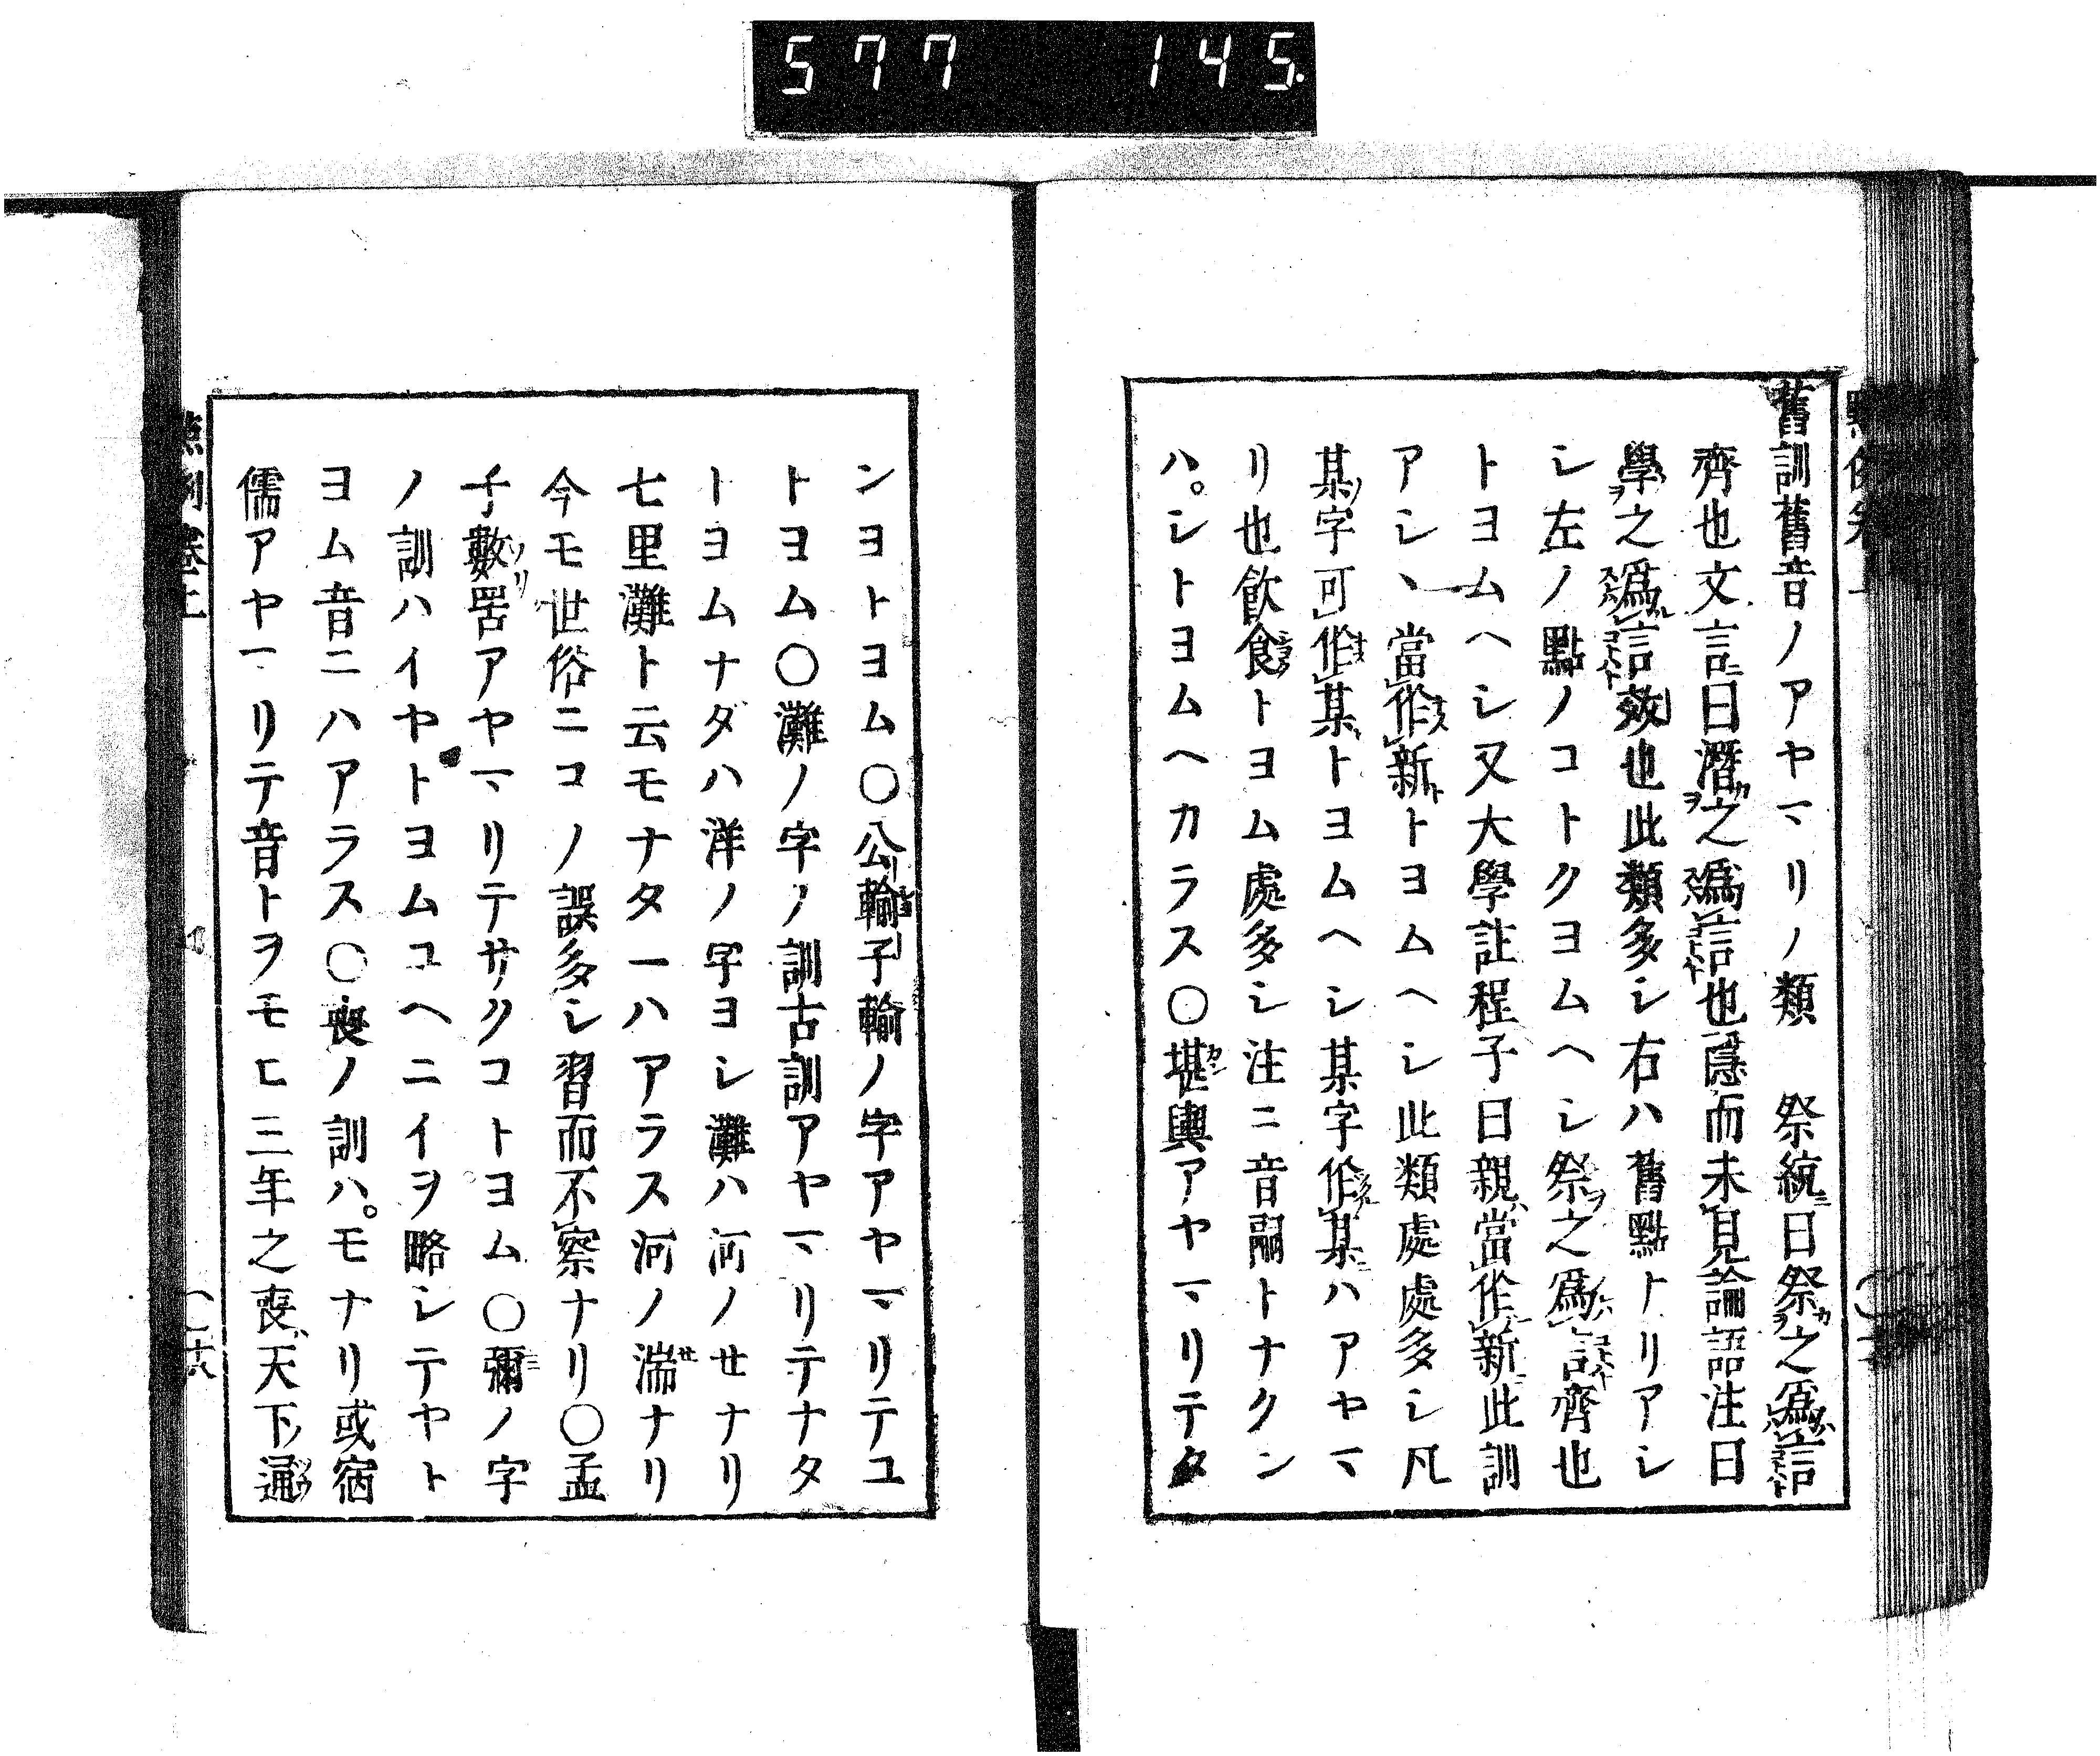 577 145
舊訓舊音ノアヤマリノ類 祭統曰祭之爲言
齊也文言曰潛之爲言也隱而未見論語注曰
學之爲言效也此類多シ右ハ舊點トリアシ
シ左ノ點ノコトクヨムヘシ祭之爲言齊也
トヨムヘシ又大學註程子曰親當作新此訓
アシヽ當作新トヨムヘシ此類處處多シ凡
某字可作某トヨムヘシ某字作某ハアヤマ
リ也飮食トヨム處多シ注ニ音嗣トナクン
ハ。シトヨムヘカラス〇堪輿アヤマリテタ
ンヨトヨム〇公輸子輸ノ字アヤマリテユ
トヨム〇灘ノ字ノ訓古訓アヤマリテナタ
トヨムナダハ洋ノ字ヨシ灘ハ河ノセナリ
七里灘ト云モナターハアラス河ノ湍ナリ
今モ世俗ニコノ誤多シ習而不察ナリ〇孟
子數罟アヤマリテサクコトヨム〇彌ノ字
ノ訓ハイヤトヨムユヘニイヲ略シテヤト
ヨム音ニハアラス〇喪ノ訓ハ。モナリ或宿
儒アヤマリテ音トヲモヒ三年之喪天下通
點例卷上